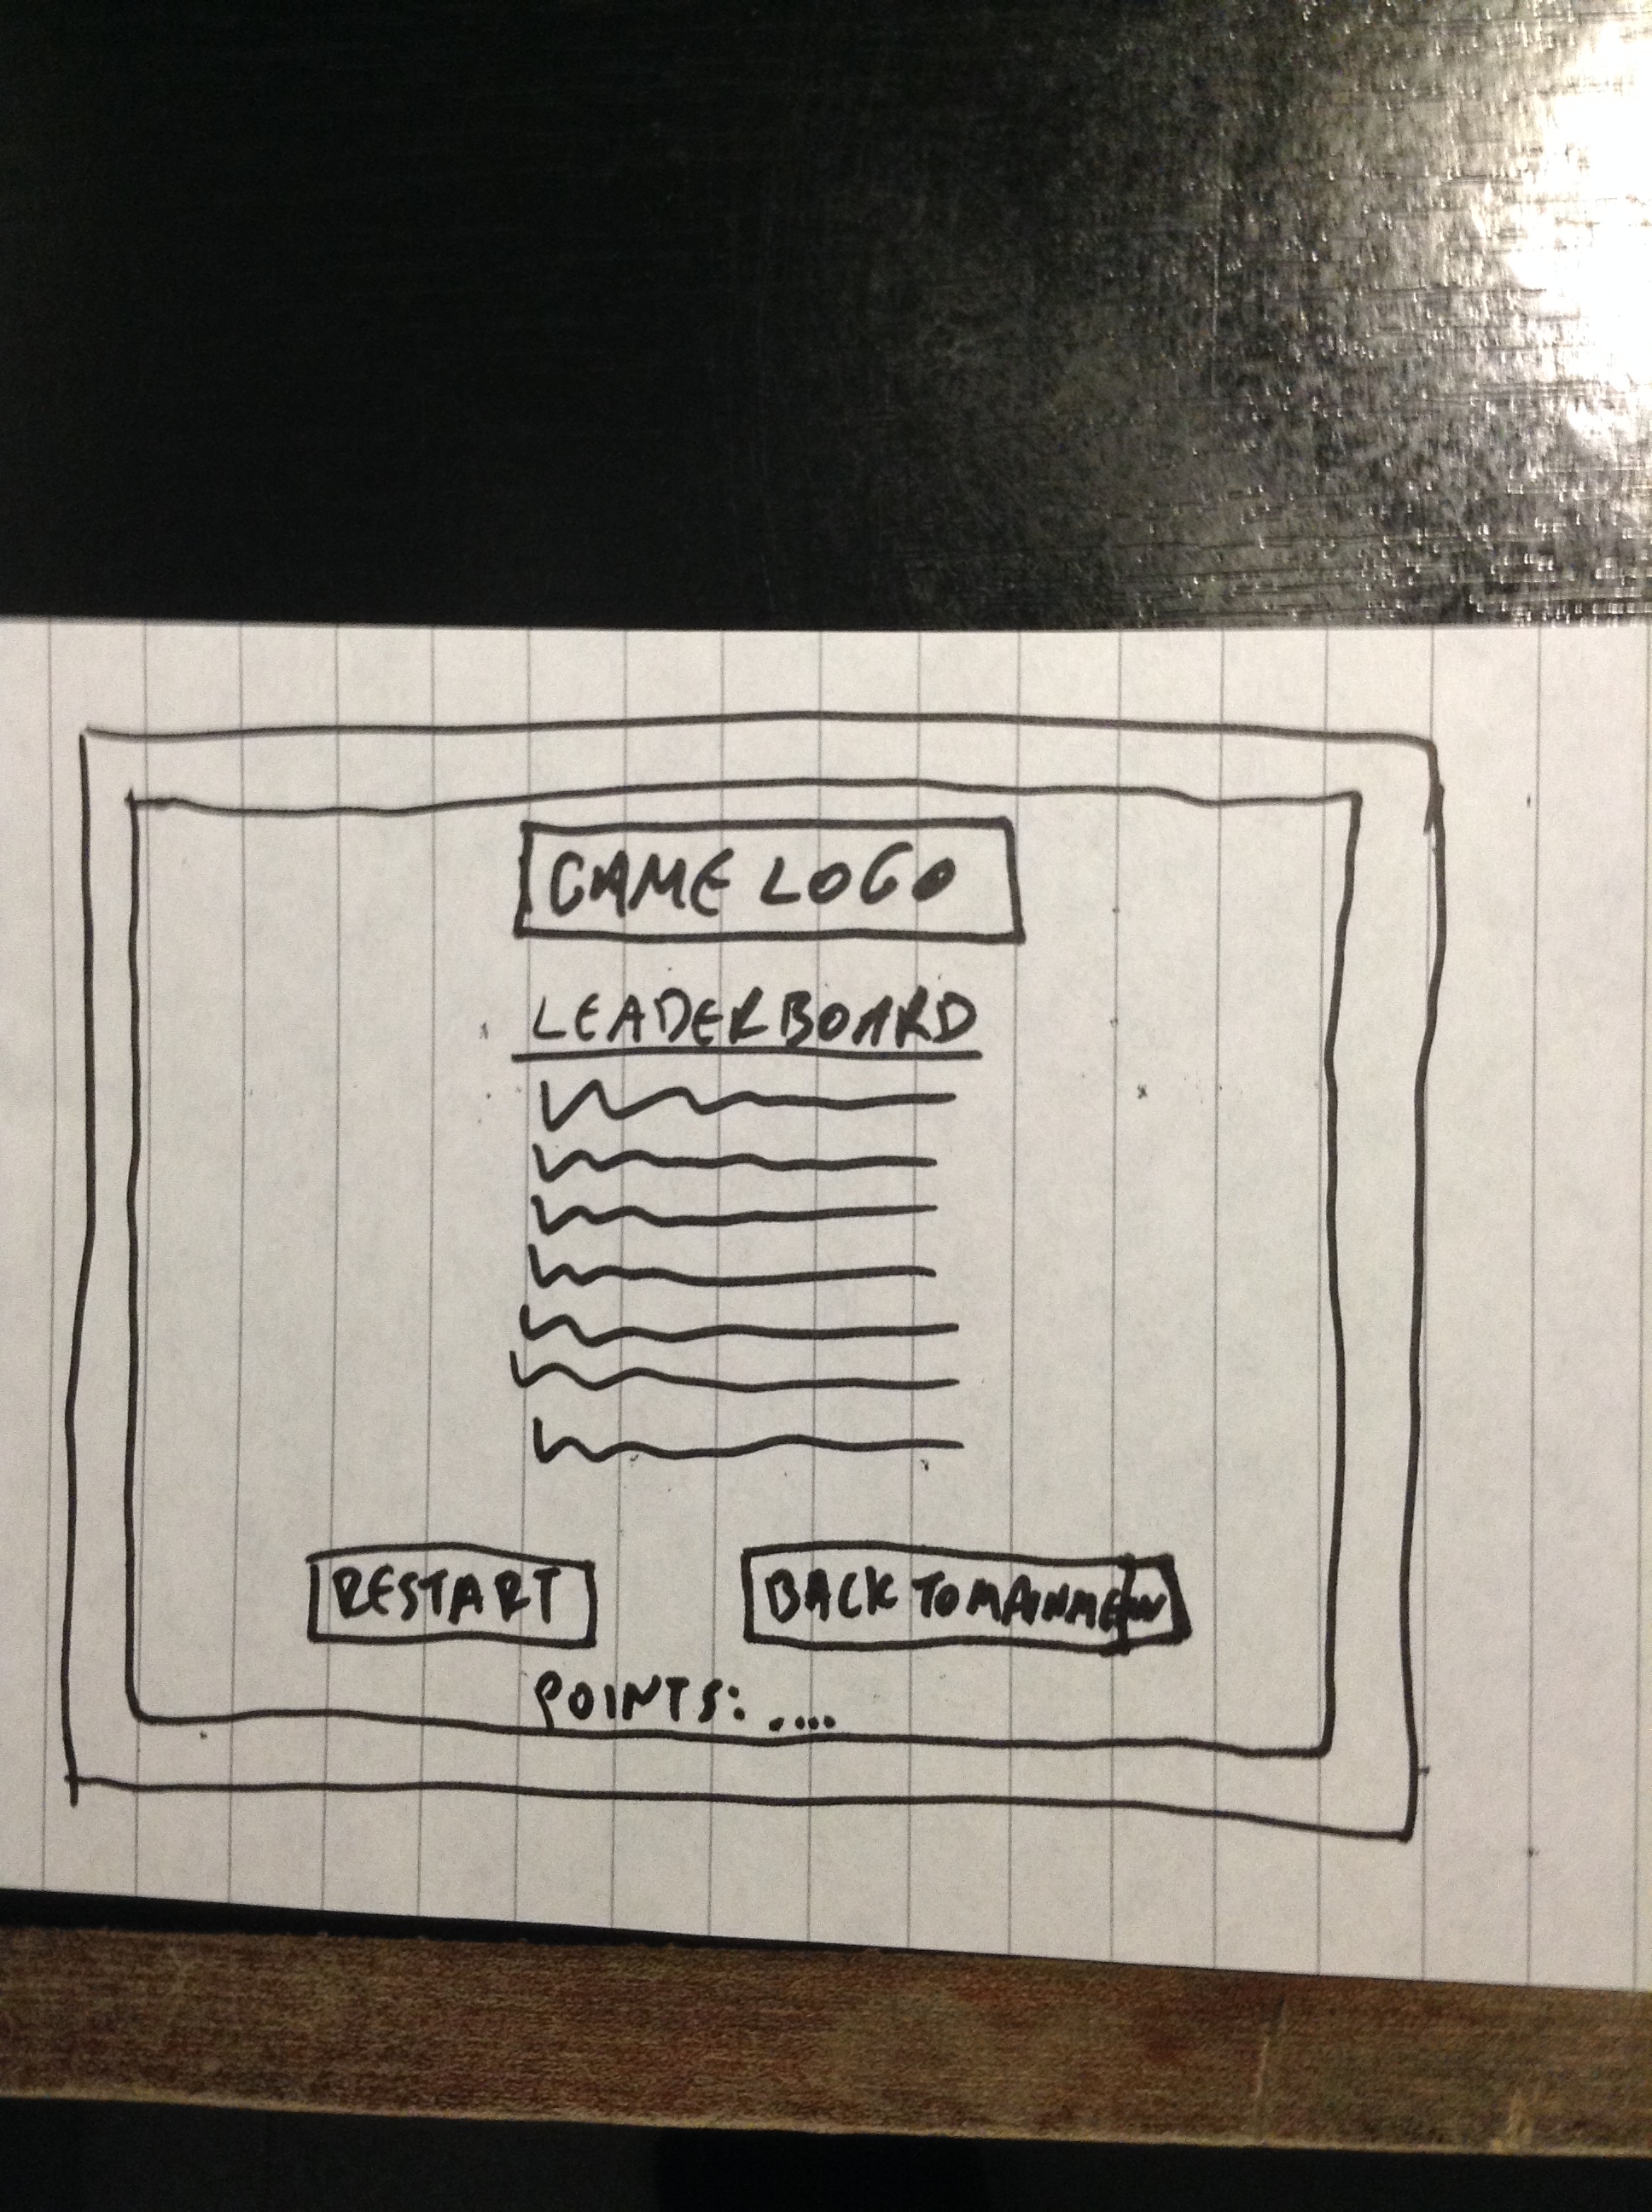 GAME LOGO
LEADERBOARD
RESTART
BACK TO MAIN MENU
POINTS: ....